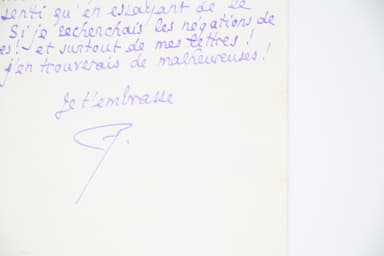 senti qu'en essayant de te
Si je recherchais les négations de
es! et surtout de mes lettres!
j'en trouverais de malheureuses!
Je t'embrasse